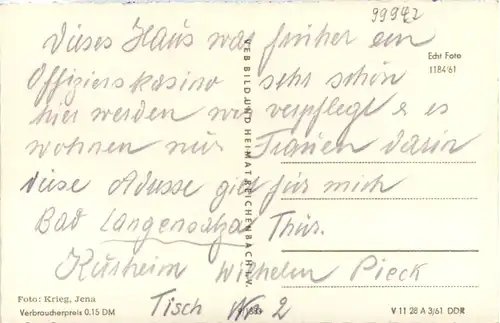 99942
Dieses Haus war früher ein
Offizierskasino sehr schön
hier werden wir verpflegt & es
wohnen nur Frauen darin
diese Adresse gilt für mich
Bad Langensalza Thür.
Kurheim Wilhelm Pieck
Tisch Nr 2
Echt Foto
1184/61
VEB BILD UND HEIMAT REICHENBACH I. V.
Foto: Krieg, Jena
Verbraucherpreis 0,15 DM
V 11 28 A 3/61 DDR